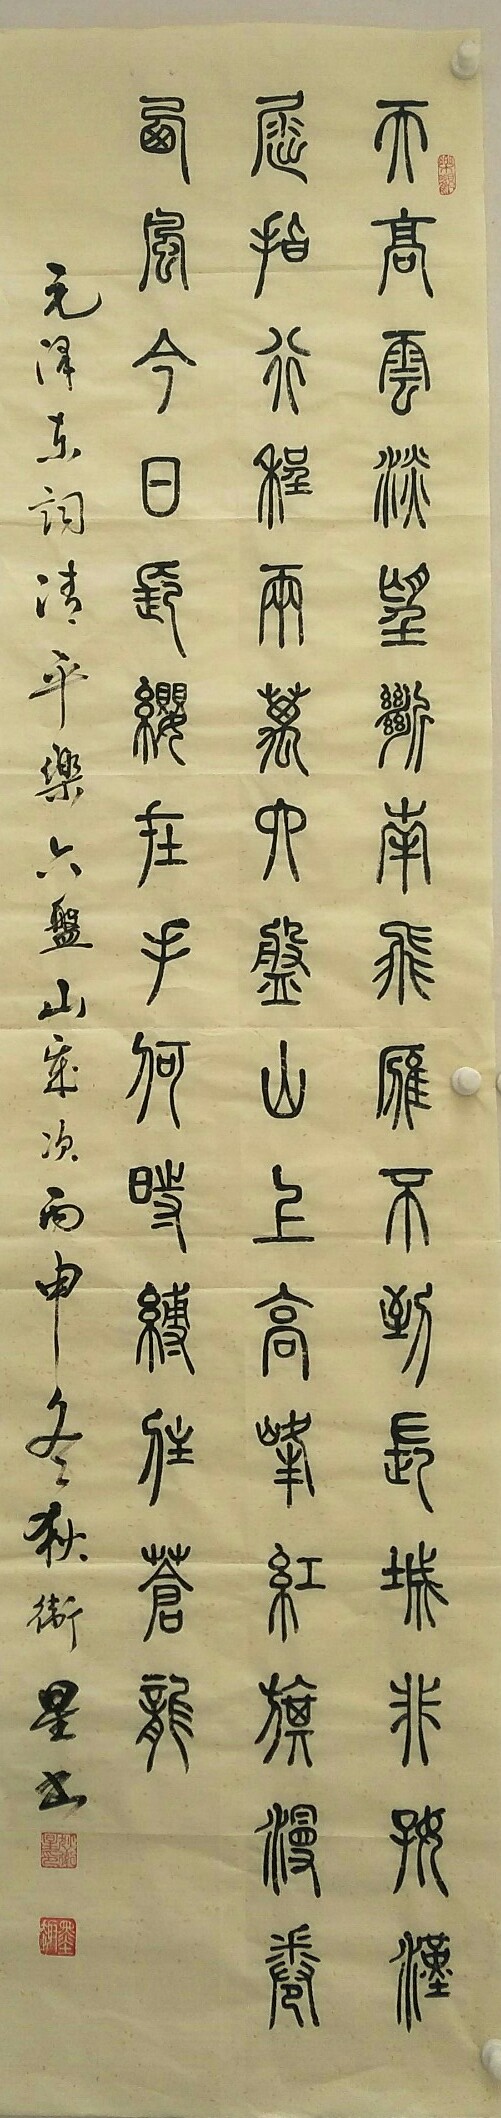 天高雲淡望斷南飛雁不到長城非好漢
屈指行程兩萬六盤山上高峰紅旗漫卷
西風今日長纓在手何時縛住蒼龍
毛澤東詞清平樂六盤山歲次丙申冬狄衛星書